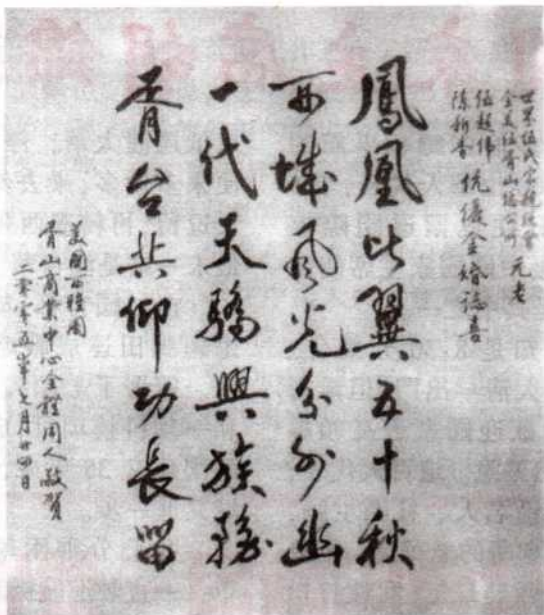 世界伍氏宗親總會
全美伍胥山總公所 元老
伍超偉
陳新香 伉儷金婚誌喜
鳳凰比翼五十秋
西城風光分外幽
一代天驕興族務
胥台共仰功長留
美國西雅圖
胥山商業中心全體同人敬賀
二零零五年七月廿四日